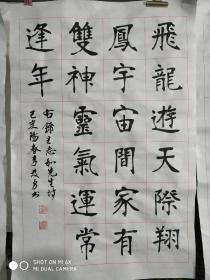 飛龍遊天際翔
鳳宇宙間家有
雙神靈氣運常
逢年
右錄王志和先生詩
己亥陽春李书
SHOT ON MI 6X
MI DUAL CAMERA